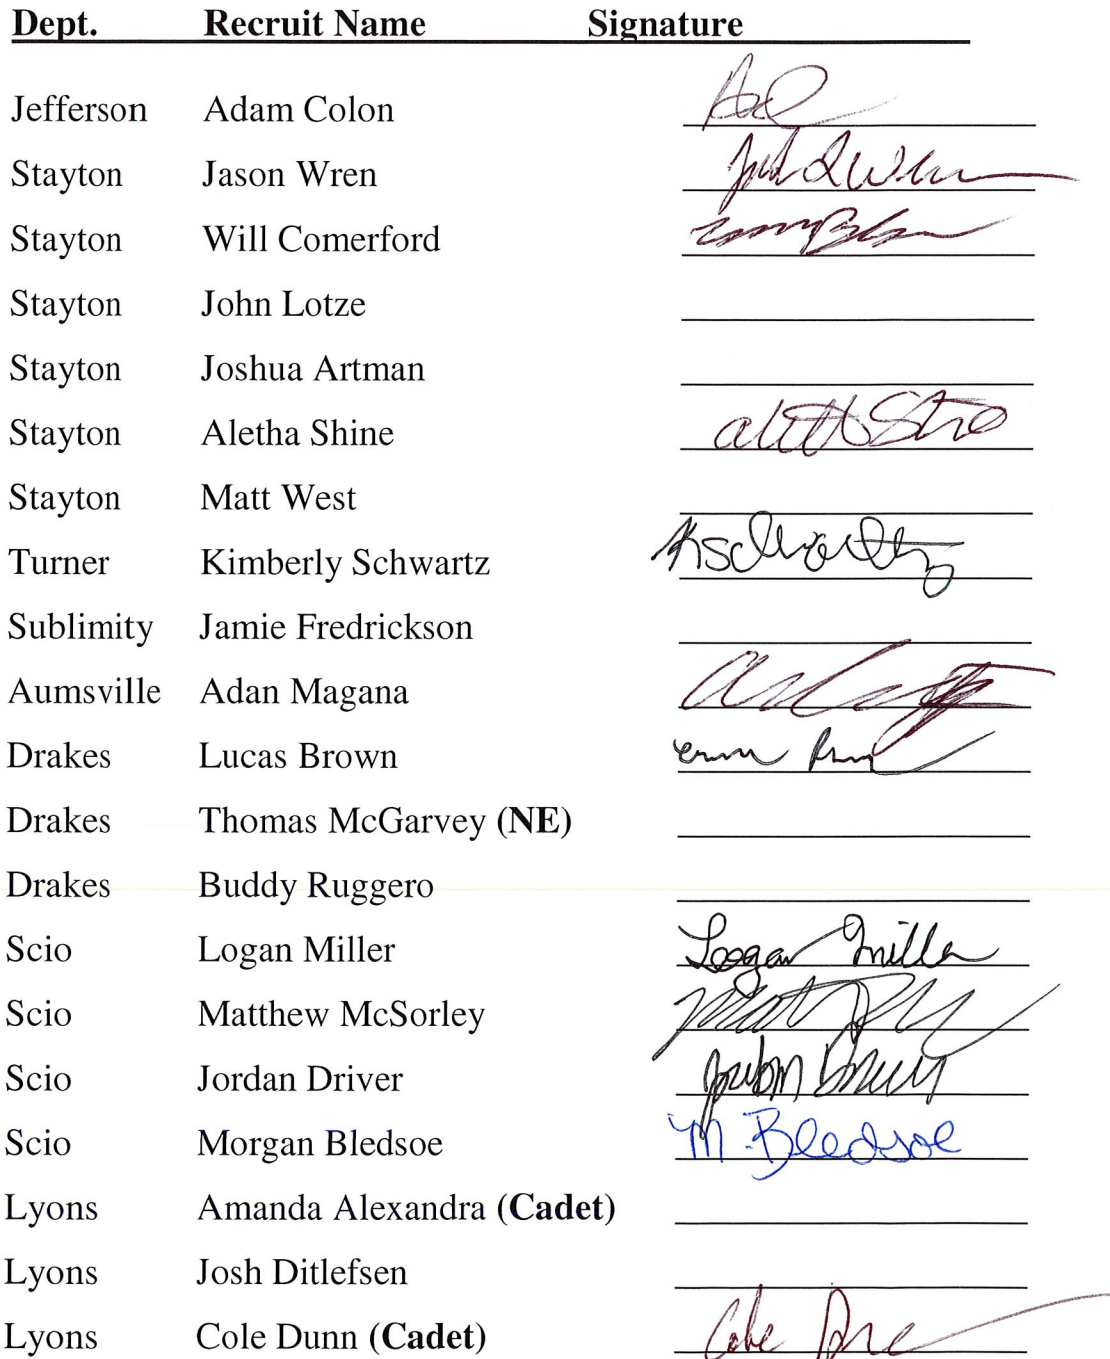 Dept. Recruit Name Signature
Jefferson Adam Colon
Stayton Jason Wren
Stayton Will Comerford
Stayton John Lotze
Stayton Joshua Artman
Stayton Aletha Shine
Stayton Matt West
Turner Kimberly Schwartz KSchwartz
Sublimity Jamie Fredrickson
Aumsville Adan Magana
Drakes Lucas Brown
Drakes Thomas McGarvey (NE)
Drakes Buddy Ruggero
Scio Logan Miller Logan Miller
Scio Matthew McSorley
Scio Jordan Driver
Scio Morgan Bledsoe M. Bledsoe
Lyons Amanda Alexandra (Cadet)
Lyons Josh Ditlefsen
Lyons Cole Dunn (Cadet)